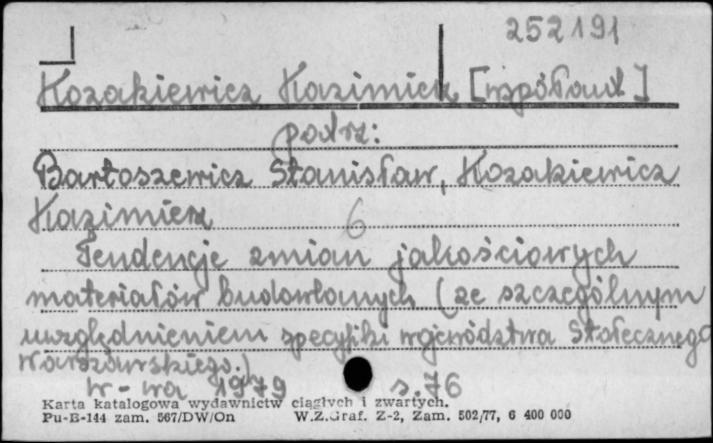 252191
Kozakiewicz Kazimierz [współaut.]
podrz:
Bartoszewicz Stanisław, Kozakiewicz
Kazimierz
6
Tendencje zmian jakościowych
materiałów budowlanych (ze szczególnym
uwzględnieniem specyfiki województwa Stołecznego
Warszawskiego.)
W-wa 1979 s. 76
Karta katalogowa wydawnictw ciągłych i zwartych.
Pu-B-144 zam. 567/DW/On W.Z.Graf. Z-2, Zam. 502/77, 6 400 000